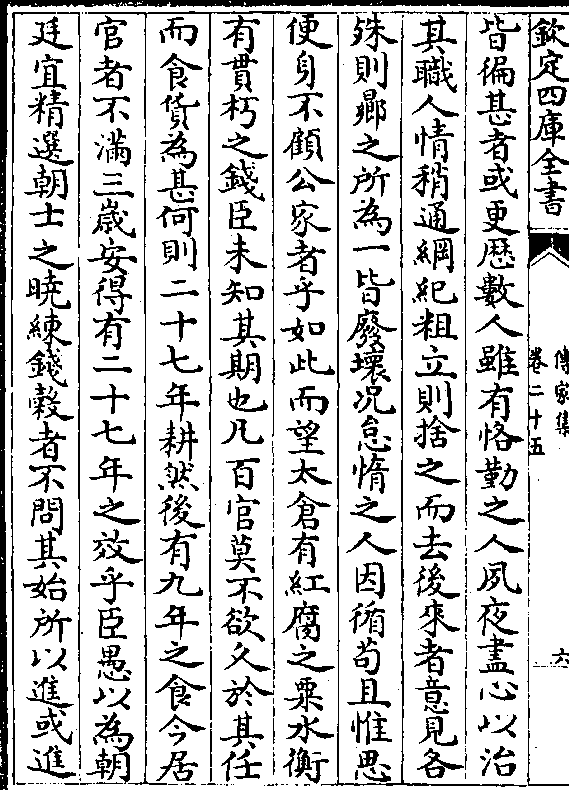 欽定四庫全書
傳家集
卷二十五
六
皆徧甚者或更歴數人雖有恪勤之人夙夜盡心以治
其職人情稍通綱紀粗立則捨之而去後來者意見各
殊則曏之所為一皆廢壞况怠惰之人因循苟且惟思
便身不顧公家者乎如此而望太倉有紅腐之粟水衡
有貫朽之錢臣未知其期也凡百官莫不欲久於其任
而食貨為甚何則二十七年耕然後有九年之食今居
官者不滿三歳安得有二十七年之效乎臣愚以為朝
廷宜精選朝士之曉練錢穀者不問其始所以進或進